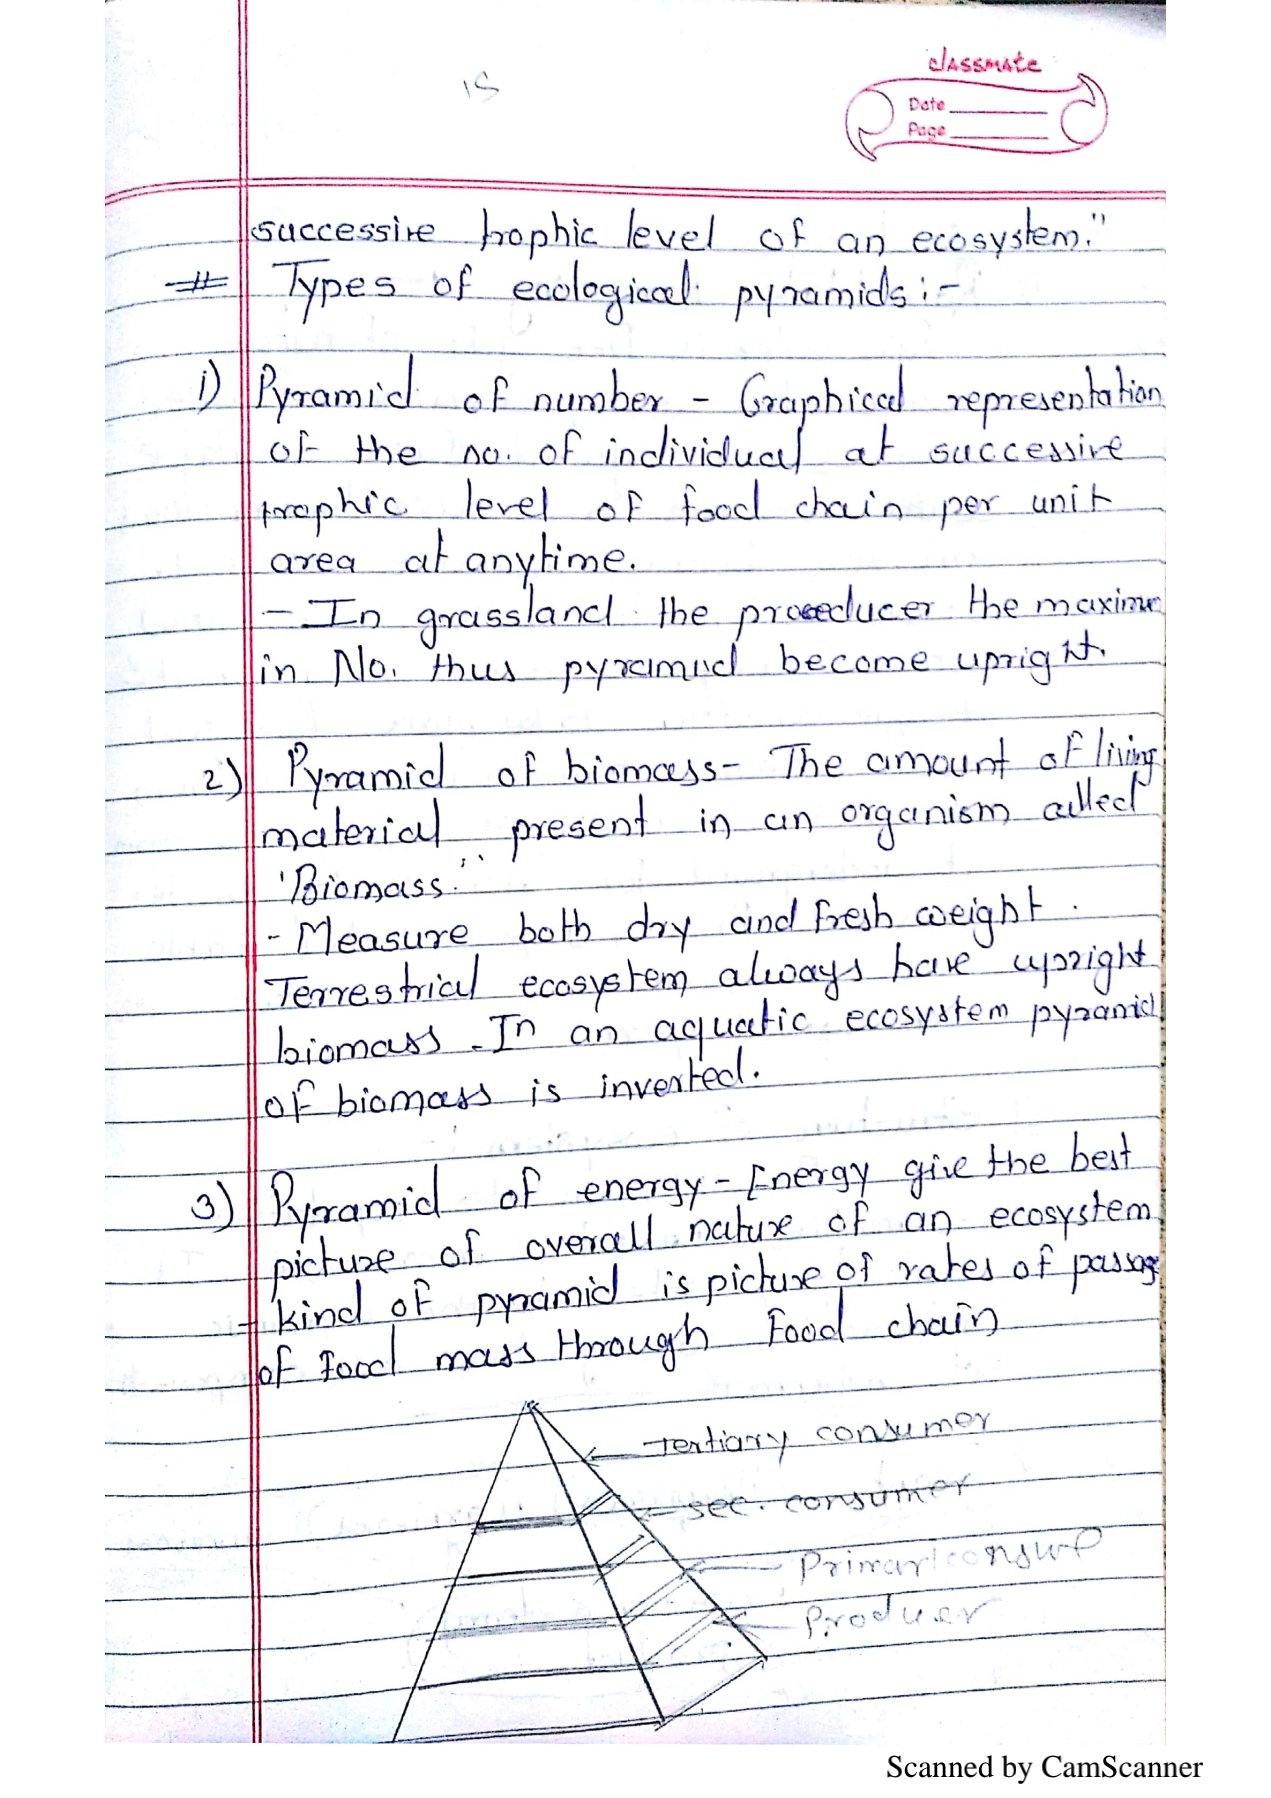 15
classmate
Date
Page
successive trophic level of an ecosystem."
# Types of ecological pyramids :-
1) Pyramid of number - Graphical representation
of the no. of individual at successive
trophic level of food chain per unit
area at anytime.
- In grassland the proceducer the maximu
in No. thus pyramid become upright.
2) Pyramid of biomass - The amount of living
material present in an organism called
"Biomass."
- Measure both dry and fresh weight.
Terrestrial ecosystem always have upright
biomass. In an aquatic ecosystem pyramid
of biomass is inverted.
3) Pyramid of energy - Energy give the best
picture of overall nature of an ecosystem
- kind of pyramid is picture of rates of passage
of food mass through food chain
Tertiary consumer
sec. consumer
Primar consume
Producer
Scanned by CamScanner